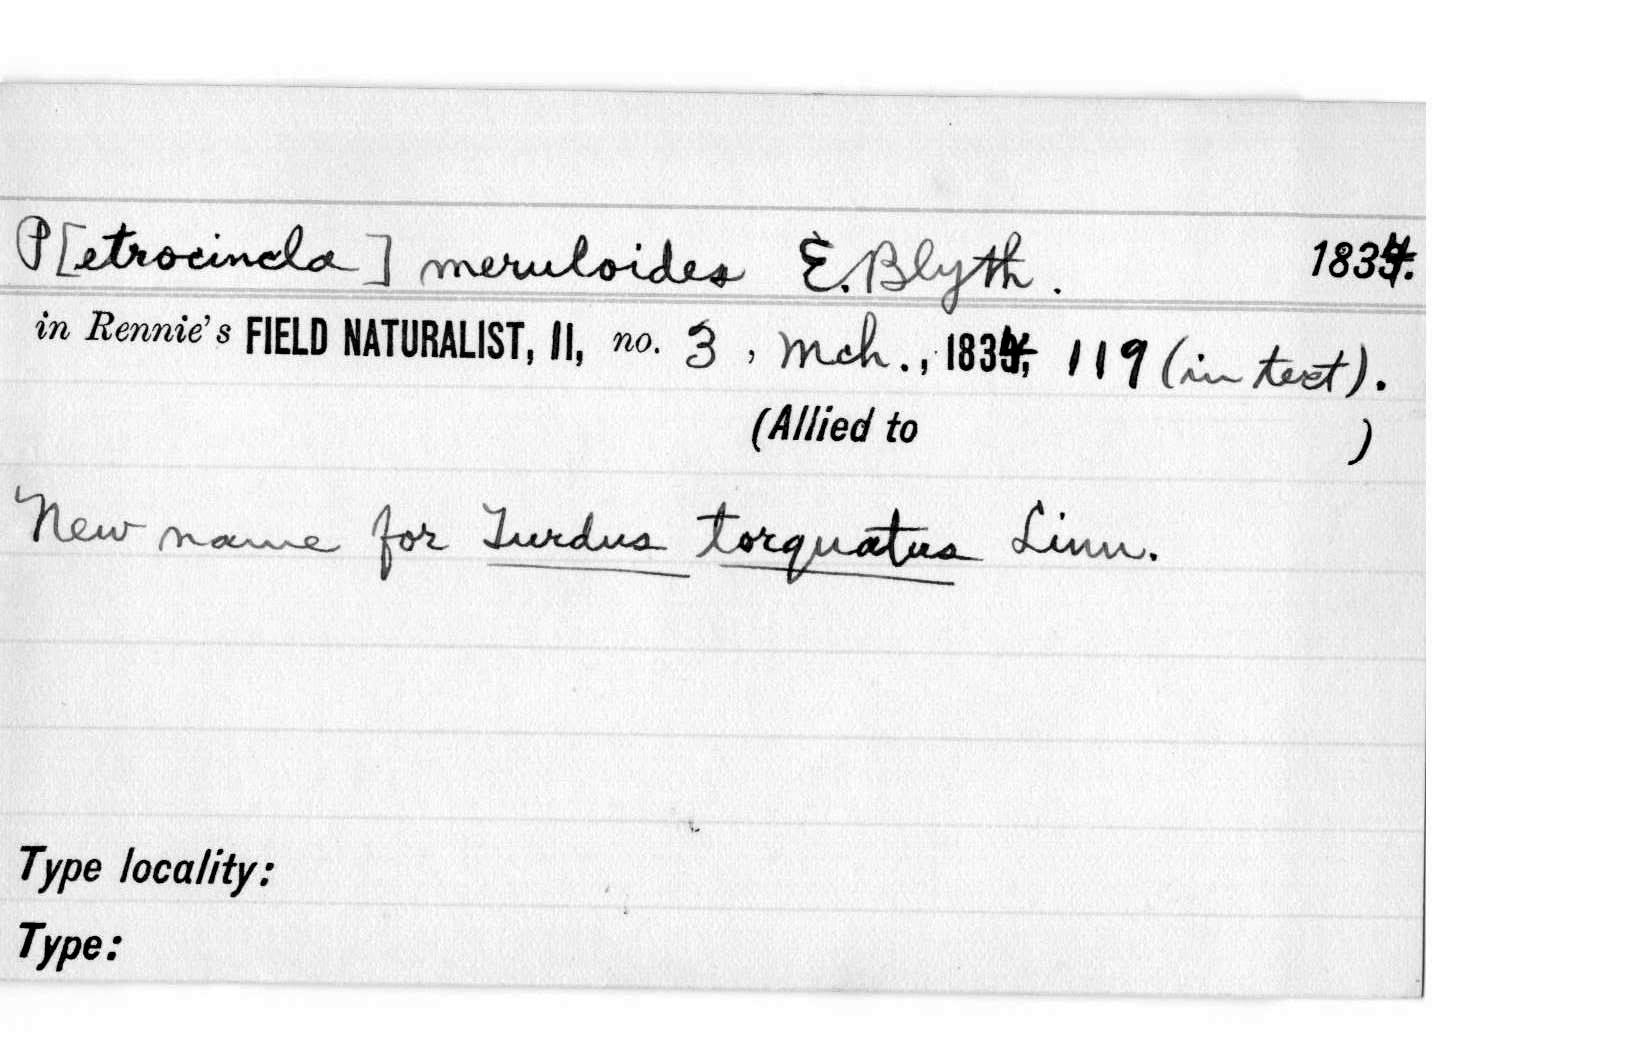 P[etrocincla] meruloides E. Blyth. 1834.
in Rennie's FIELD NATURALIST, II, no. 3, Mch., 1834, 119 (in text).
(Allied to )
New name for Turdus torquatus Linn.
Type locality:
Type: